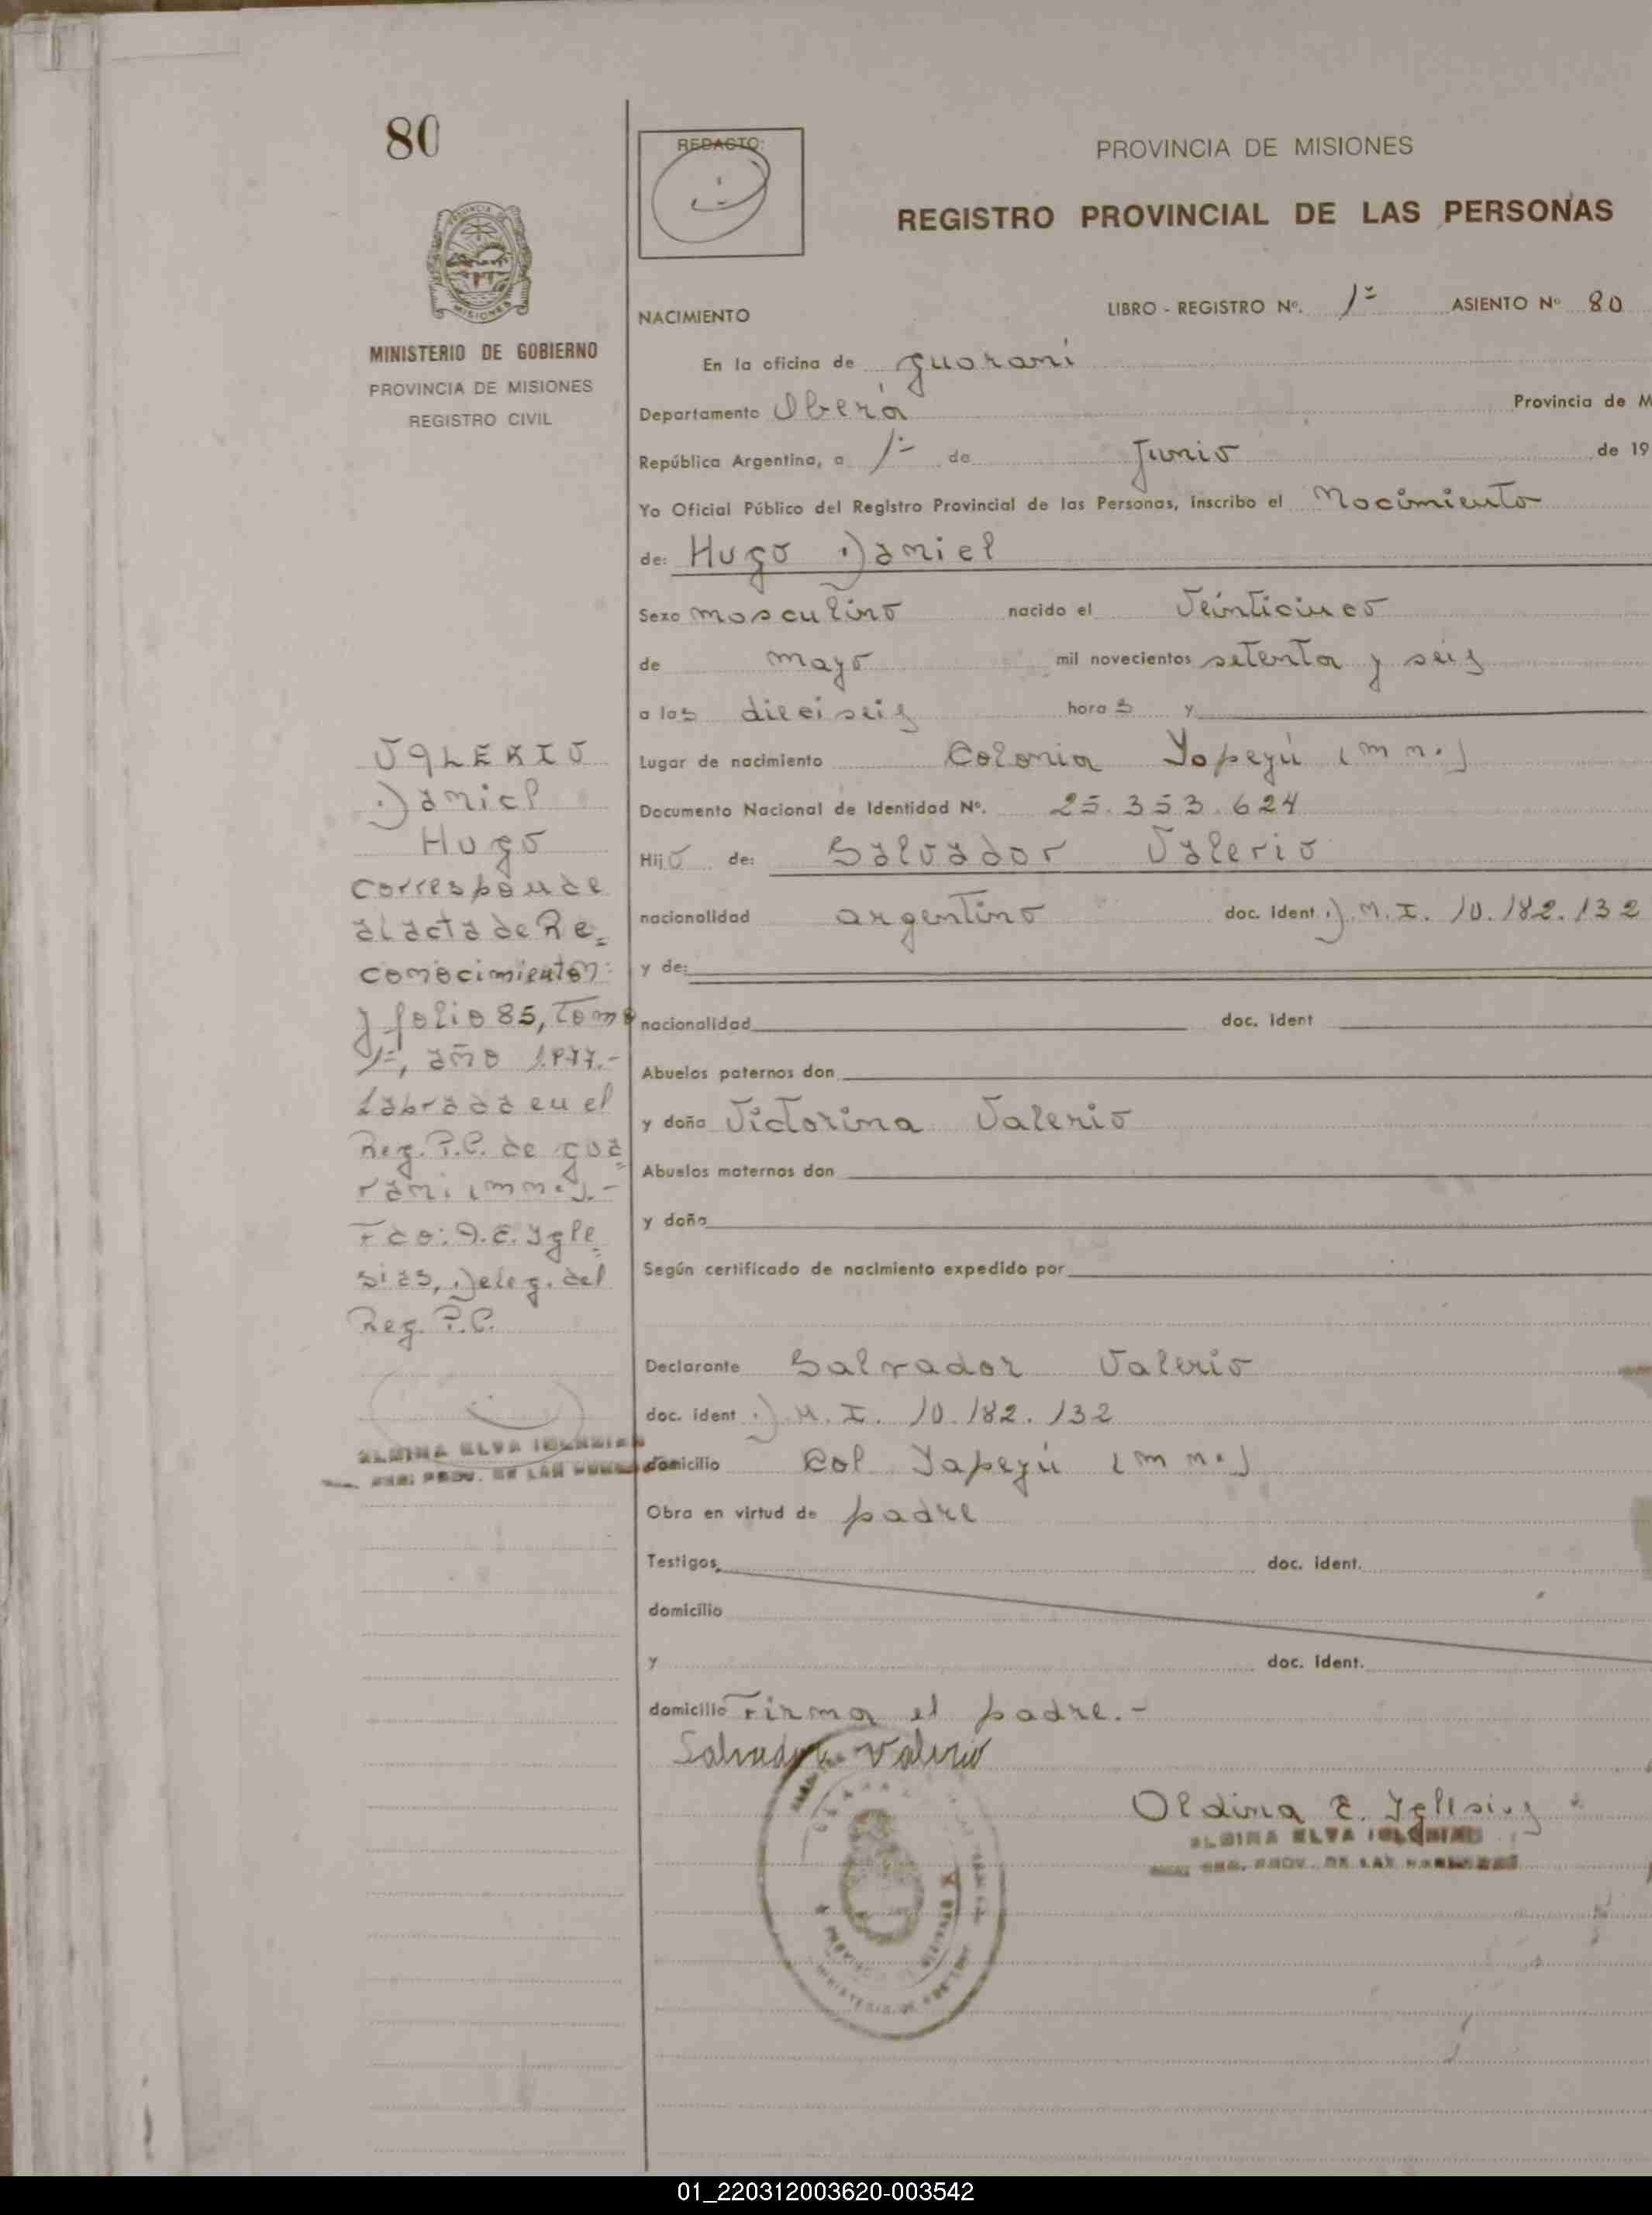 80
PROVINCIA DE MISIONES
MINISTERIO DE GOBIERNO
PROVINCIA DE MISIONES
REGISTRO CIVIL
VALERIO
Daniel
Hugo
corresponde
al acta de Re=
conocimiento n:
y folio 85, Tomo
1º, año 1977.-
Labrada en el
Reg. P.P. de gua=
rani (mnes).-
Fdo: A.E. Igle=
sias, Deleg. del
Reg. P.P.
ALDINA ELVA IGLESIAS
REG. PROV. DE LAS PERSONAS
REDACTO:
PROVINCIA DE MISIONES
REGISTRO PROVINCIAL DE LAS PERSONAS
NACIMIENTO LIBRO - REGISTRO Nº. 1º ASIENTO Nº 80
En la oficina de guarani
Departamento Oberá Provincia de M
República Argentina, a 1º de Junio de 19
Yo Oficial Público del Registro Provincial de las Personas, inscribo el Nacimiento
de: Hugo Daniel
Sexo masculino nacido el Veinticinco
de mayo mil novecientos setenta y seis
a las dieciseis horas y
Lugar de nacimiento Colonia Yapeyú (mn.)
Documento Nacional de Identidad Nº. 25.353.624
Hijo de: Salvador Valerio
nacionalidad argentino doc. ident D.M.I. 10.182.132
y de:
nacionalidad doc. ident
Abuelos paternos don
y doña Victorina Valerio
Abuelos maternos don
y doña
Según certificado de nacimiento expedido por
Declarante Salvador Valerio
doc. ident D.M.I. 10.182.132
domicilio Col Yapeyú (mn.)
Obra en virtud de padre
Testigos doc. ident.
domicilio
y doc. ident.
domicilio Firma el padre.-
Salvador Valerio
Aldina E. Iglesias
ALDINA ELVA IGLESIAS
REG. PROV. DE LAS PERSONAS
PROVINCIA DE MISIONES
MINISTERIO DE
01_220312003620-003542